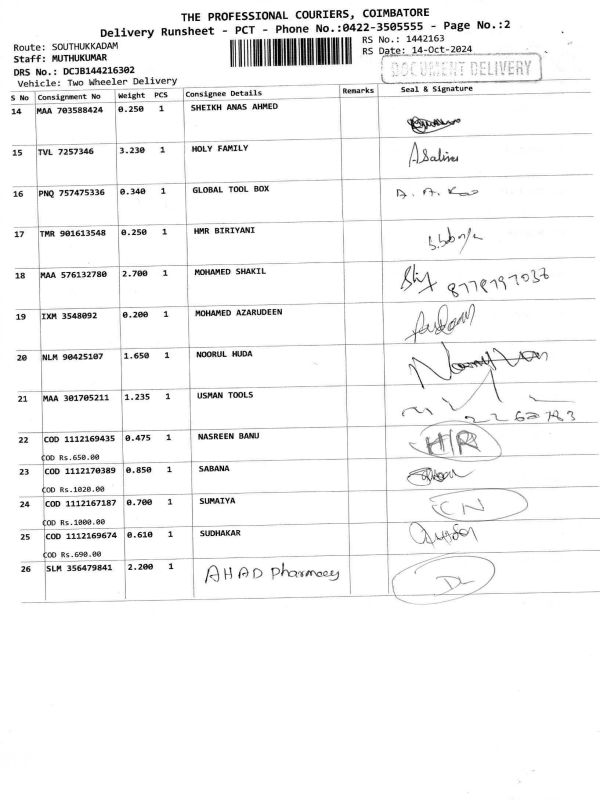 THE PROFESSIONAL COURIERS, COIMBATORE
Delivery Runsheet - PCT - Phone No.:0422-3505555 - Page No.:2
Route: SOUTHUKKADAM
RS No.: 1442163
Staff: MUTHUKUMAR
RS Date: 14-Oct-2024
DRS No.: DCJB144216302
DOCUMENT DELIVERY
Vehicle: Two Wheeler Delivery
S No Consignment No Weight PCS Consignee Details Remarks Seal & Signature
14 MAA 703588424 0.250 1 SHEIKH ANAS AHMED
15 TVL 7257346 3.230 1 HOLY FAMILY
16 PNQ 757475336 0.340 1 GLOBAL TOOL BOX
17 TMR 901613548 0.250 1 HMR BIRIYANI
18 MAA 576132780 2.700 1 MOHAMED SHAKIL
19 IXM 3548092 0.200 1 MOHAMED AZARUDEEN
20 NLM 90425107 1.650 1 NOORUL HUDA
21 MAA 301705211 1.235 1 USMAN TOOLS
22 COD 1112169435 0.475 1 NASREEN BANU H/R
COD Rs.650.00
23 COD 1112170389 0.850 1 SABANA
COD Rs.1020.00
24 COD 1112167187 0.700 1 SUMAIYA CN
COD Rs.1000.00
25 COD 1112169674 0.610 1 SUDHAKAR
COD Rs.690.00
26 SLM 356479841 2.200 1 AHAD Pharmacy